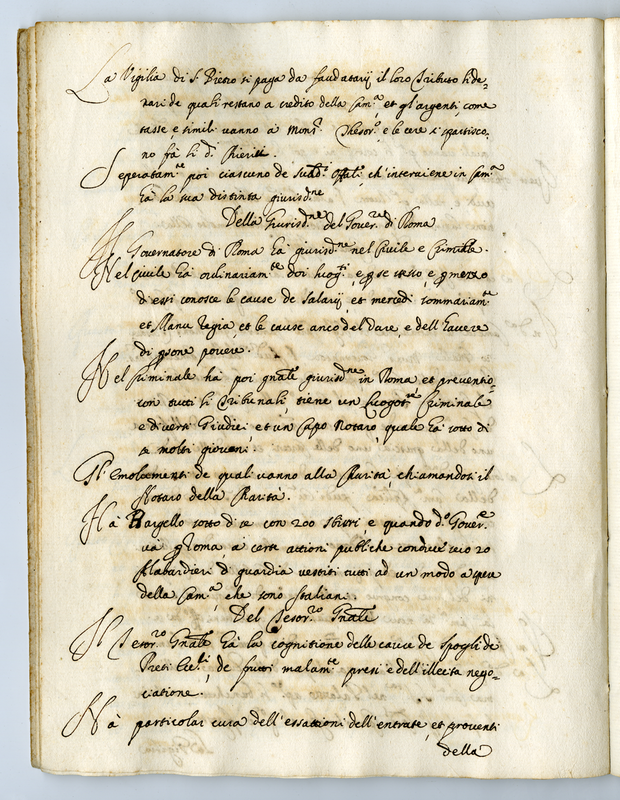 La Vigilia di S. Pietro si paga da feudatarij il loro Tributo li de¬
nari de quali restano a credito della Cam.ª et gl'argenti, come
tasse, e simili vanno à Mons.r Thesor.o e le cere si spartisco¬
no frà li d.i Chierici.
Separatam.te poi ciascuno de sud.i offitiali, ch'interviene in Cam.ª
hà la sua distinta giurisd.ne
Della Giurisd.ne del Gover.re di Roma
Il Governatore di Roma hà giurisd.ne nel Civile e Criminale.
Nel Civile hà ordinariam.te doi luog.ti e per se stesso, e per mezzo
d'essi conosce le cause de salarij, et mercedi sommariam.te
et Manu Regia, et le cause anco del Dare, e dell'havere
di persone povere.
Nel Criminale hà poi gnale giurisd.ne in Roma et preventio¬
con tutti li Tribunali, tiene un luogot.te Criminale
e diversi Giudici, et un Capo Notaro, quale hà sotto di
se molti giovani.
Gl'emolumenti de quali vanno alla Carità, chiamandosi il
Notaro della Carità.
Hà Bargello sotto di se con 200 sbirri, e quando d.o Gover.e
và per Roma, à certe attioni publiche conduce seco 20
Alabardieri di guardia vestiti tutti ad un modo à spese
della Cam.ª che sono Italiani.
Del Tesor.ro Gnale
Il Tesor.ro Gnale hà la cognitione delle cause de spogli de
Preti Ecc.ci, de frutti malam.te presi e dell'illecita nego¬
ciatione.
Hà particolar cura dell'essattioni dell'entrate, et proventi
della